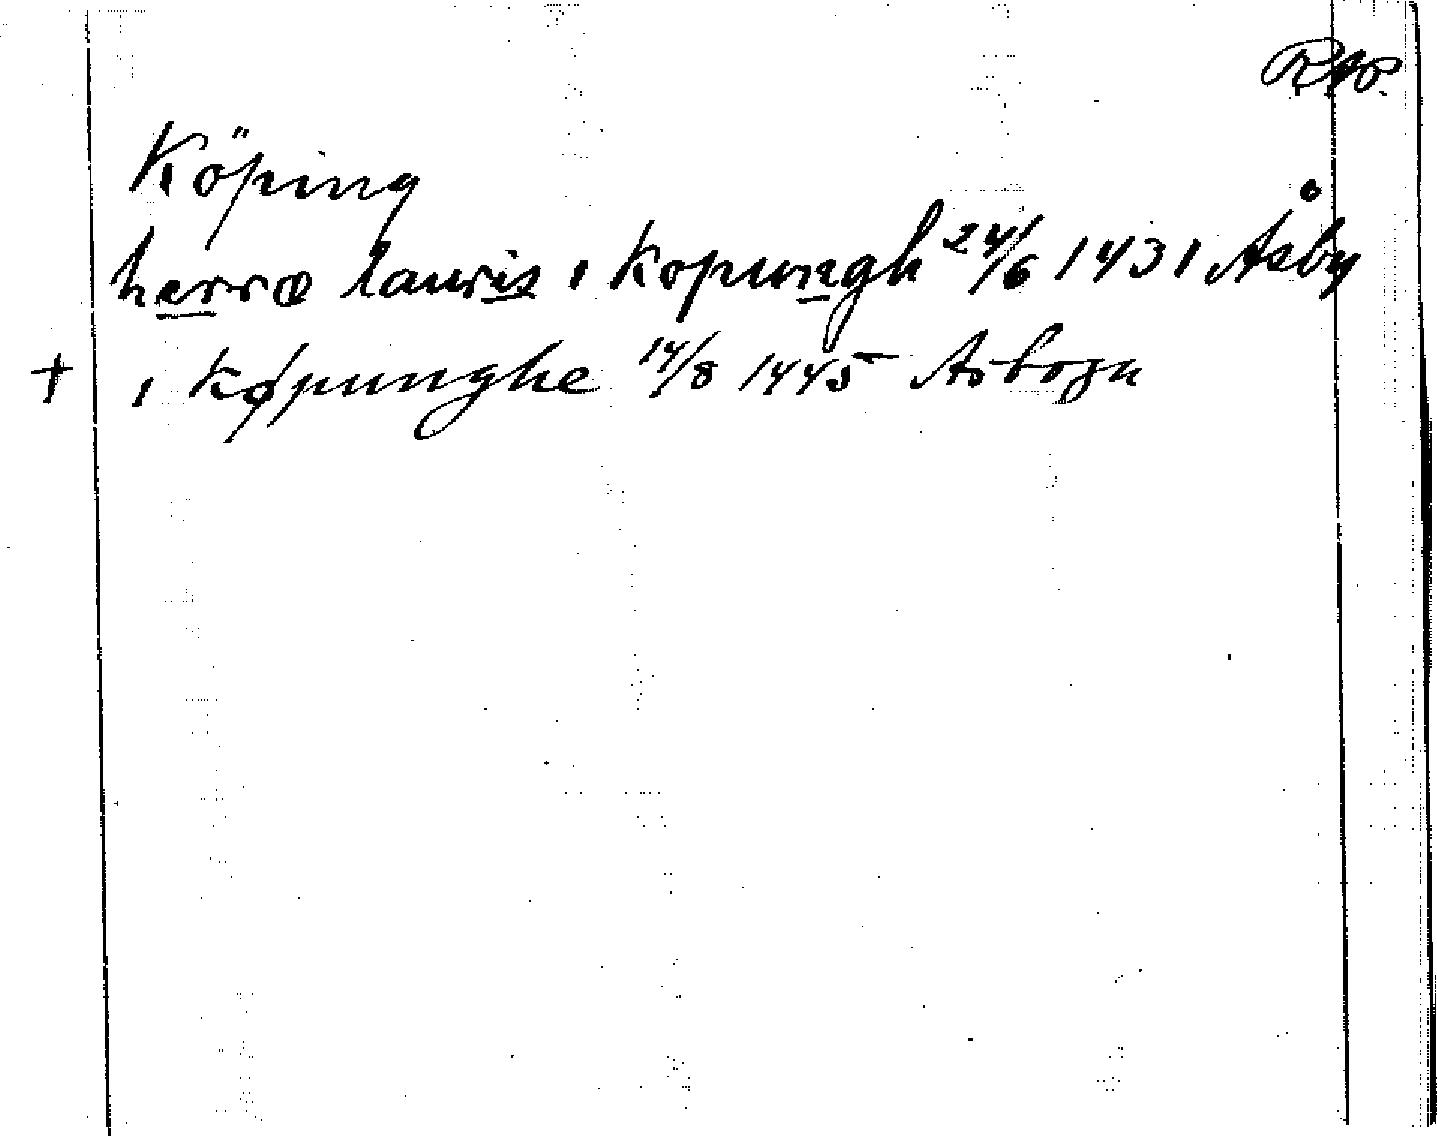 RAp.
Köping
herræ lauris i kopungh 24/6 1431 Åsby
+ i køpunghe 14/8 1445 Arboga